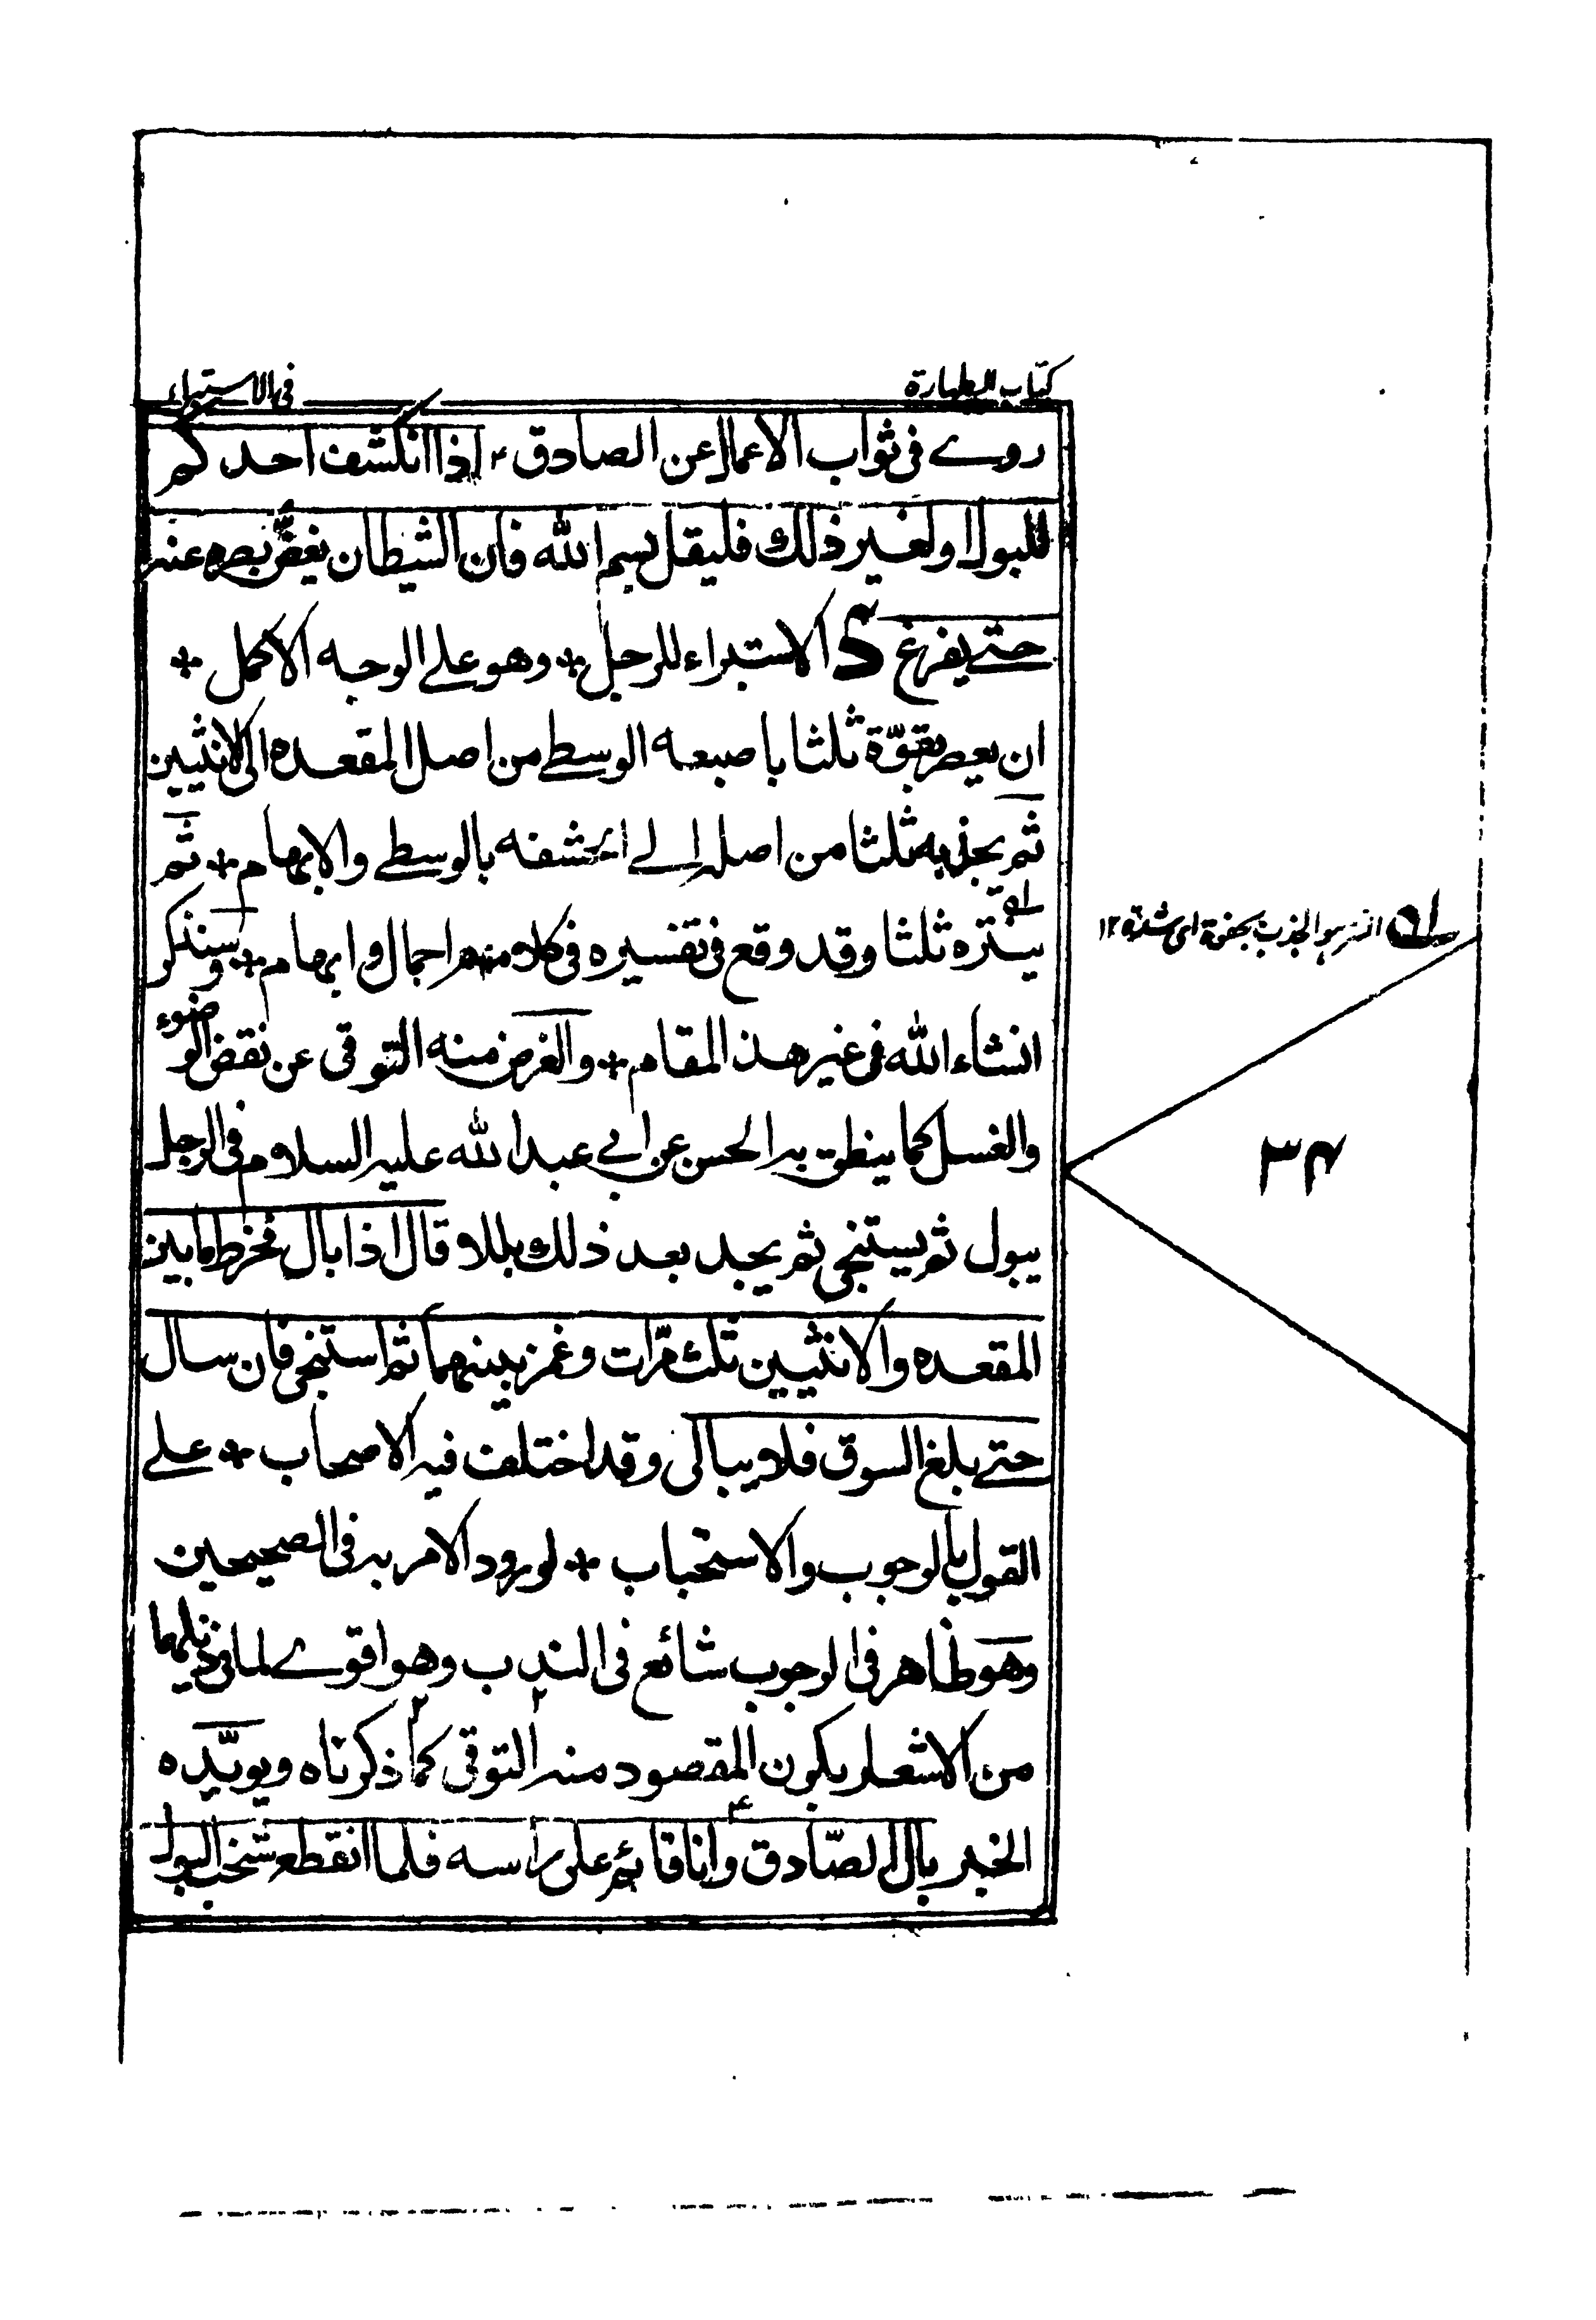 كتاب الطهارة
فى الاستبراء
روے فى ثواب الاعمال عن الصادق ؑ اذا انكشف احدكم
للبول او لغير ذلك فليقل بسم الله فان الشيطان يغضّ بصره عنه
حتے يفرغ الاستبراء للرجل * وهو علے الوجه الاكمل *
ان يعصر بقوّة ثلثا باصبعه الوسطے من اصل المقعده الى الانثيين
ثم يجذبه ثلثا من اصله الے الحشفه بالوسطے والابهام * ثم
ينتره ثلثا وقد وقع فى تفسيره فى كلامهم اجمال وابهام * وسنذكر
انشاء الله فى غير هذ المقام * والغرض منه التوقى عن نقض الوضوء
والغسل كما ينطق به الحسن عن ابے عبد الله عليه السلام فى الرجل
يبول ثم يستنجى ثم يجد بعد ذلك بللا قال اذا بال فخرط ما بين
المقعده والانثيين ثلث مرّات وغمز بينهما ثم استنجى فان سال
حتے بلغ السوق فلا يبالى وقد اختلف فيه الاصحاب * علے
القول بالوجوب والاستحباب * لورود الامر به فى الصحيحين
وهو ظاهر فى الوجوب شائع فى الندب وهو اقوے لما فى ذيلهما
من الاشعار بكون المقصود منه التوقى كما ذكرناه ويويّده
الخبر بال الصّادق ؑ وانا قائم على راسه فلما انقطع شخب البول
النتر هو الجذب بجفوة اى شدة ١٢
٣٤